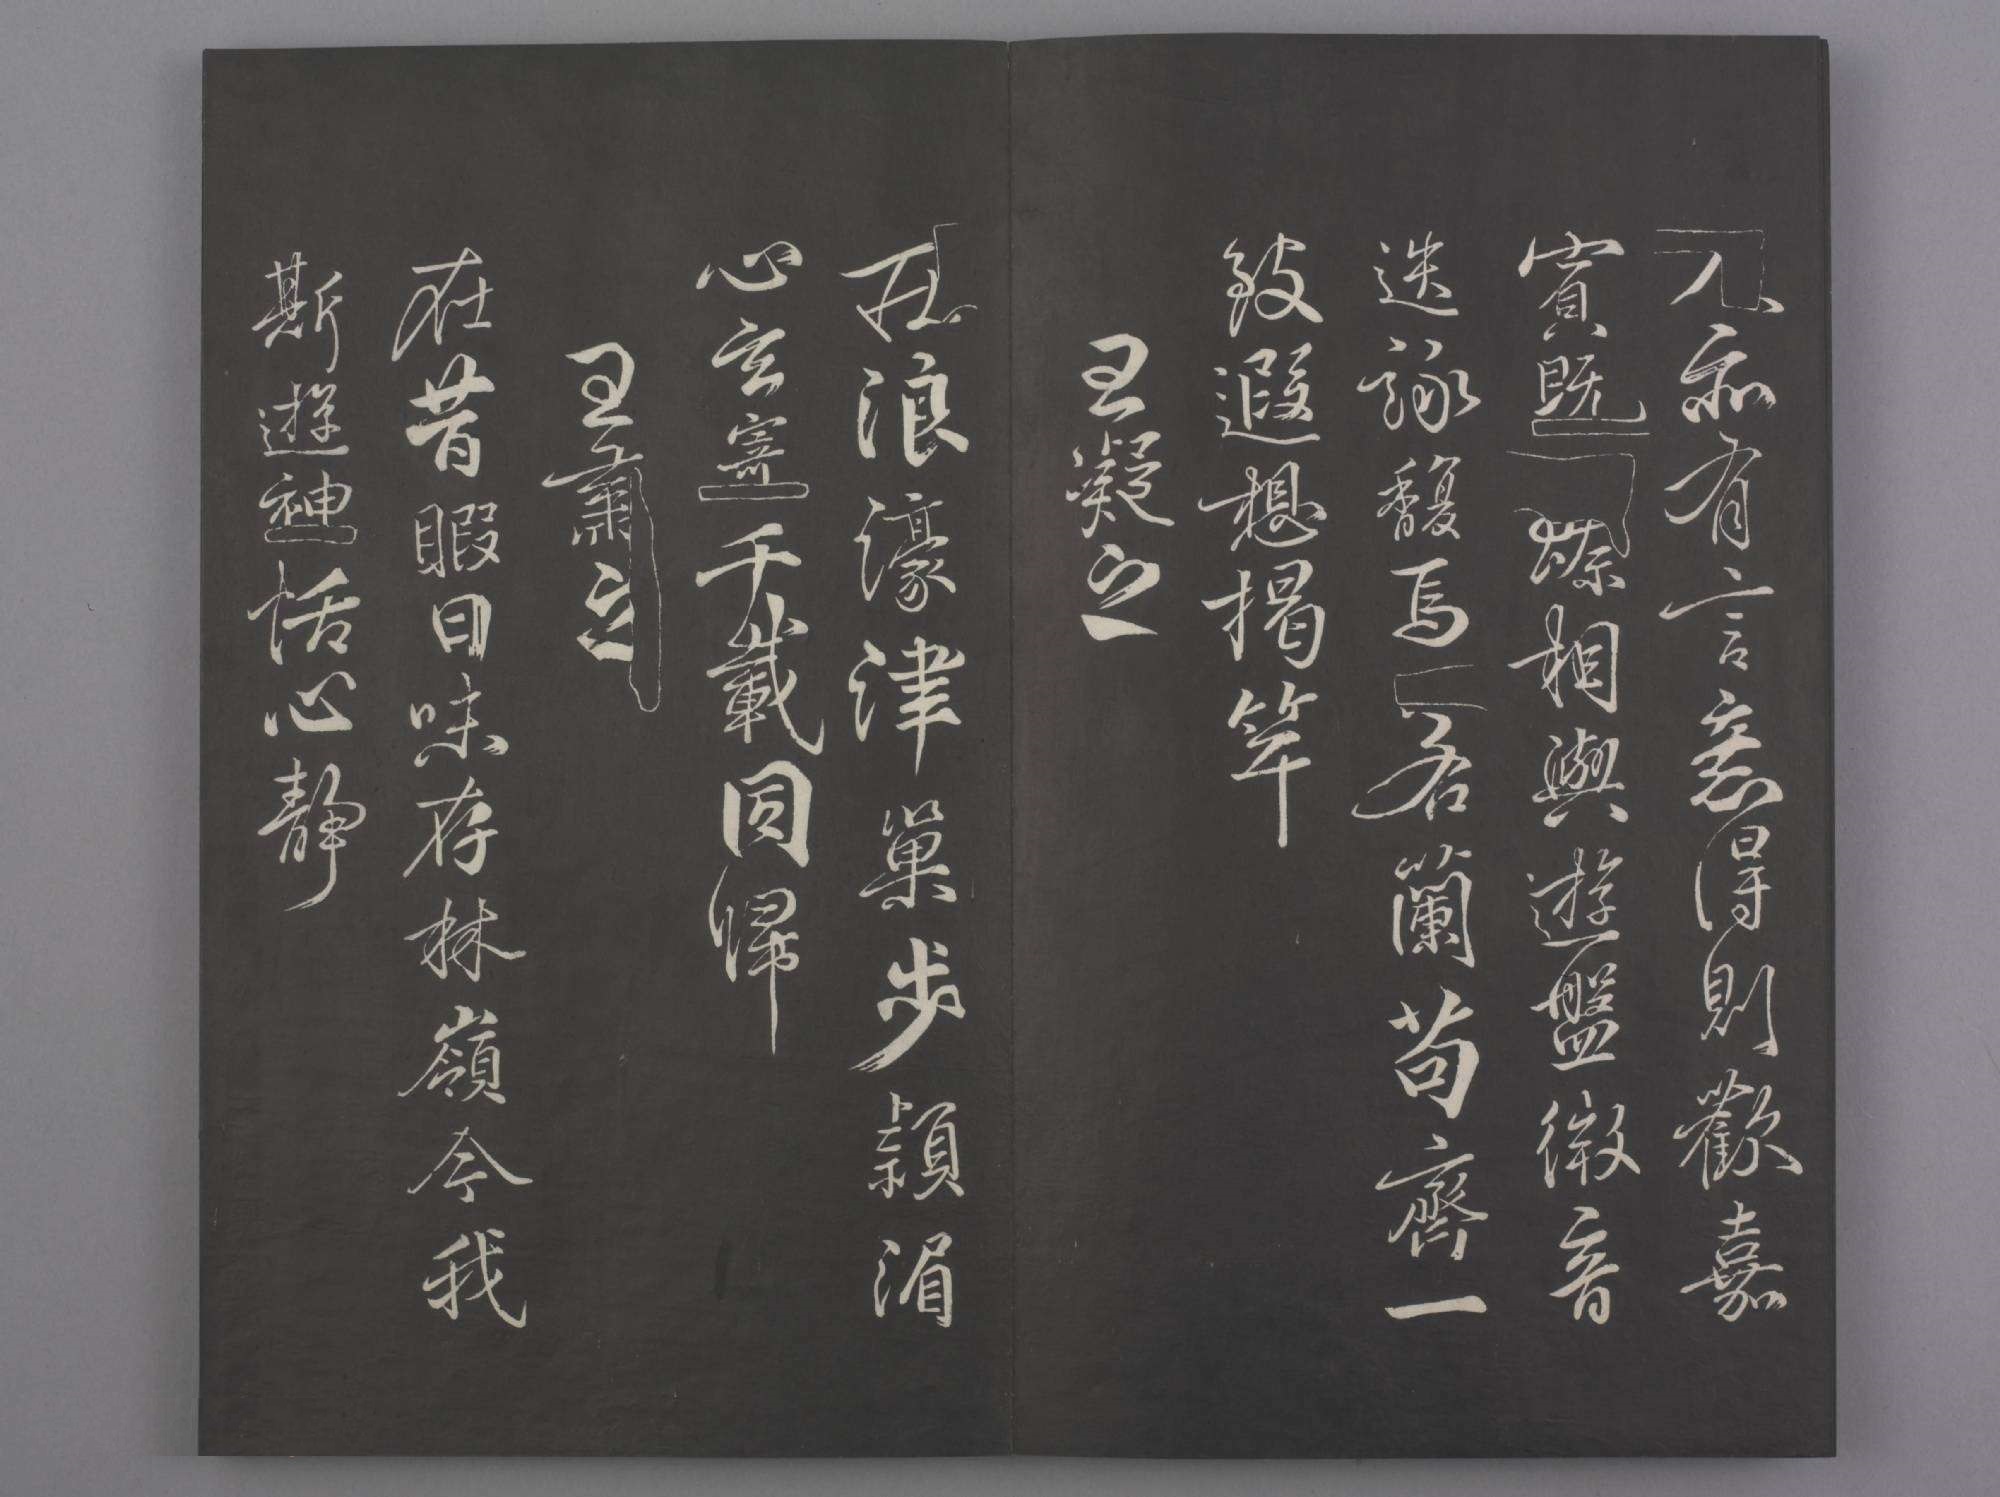 人亦有言意得則歡嘉
賓既臻相與遊盤微音
迭詠馥焉若蘭苟齊一
致遐想揭竿
王凝之
莊浪濠津巢步潁湄
心玄寄千載同歸
王肅之
在昔暇日味存林嶺今我
斯遊神怡心靜